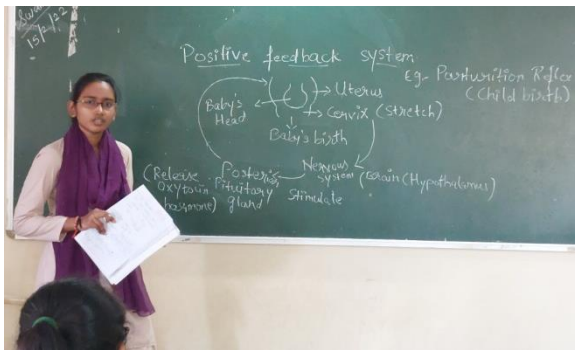 15/2/22
Positive feedback system
Eg- Parturition Reflex
(Child birth)
Uterus
Baby's
Head
Cervix (Stretch)
Baby's birth
Nervous
system (Brain (Hypothalamus)
Stimulate
Posterior
Pituitary
gland
(Release
oxytocin
hormone)